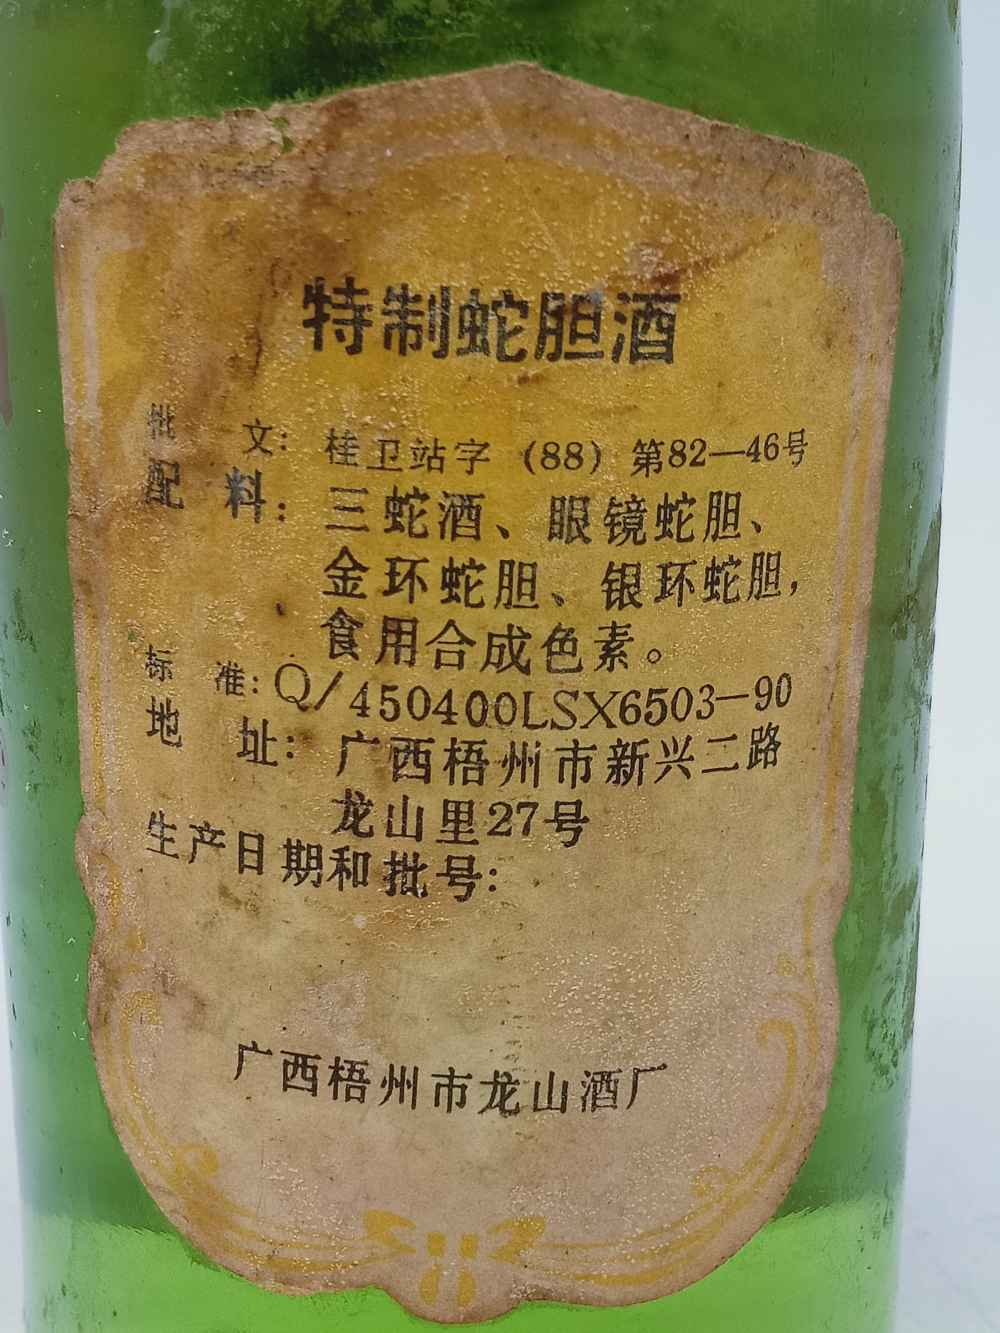 特制蛇胆酒
批 文：桂卫站字（88）第82—46号
配 料：三蛇酒、眼镜蛇胆、
金环蛇胆、银环蛇胆，
食用合成色素。
标 准：Q/450400LSX6503—90
地 址：广西梧州市新兴二路
龙山里27号
生产日期和批号：
广西梧州市龙山酒厂